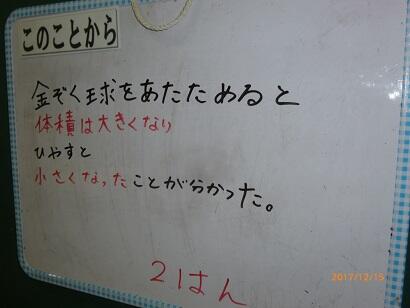 このことから
金ぞく球をあたためると
体積は大きくなり
ひやすと
小さくなったことが分かった。
2はん
2017/12/15